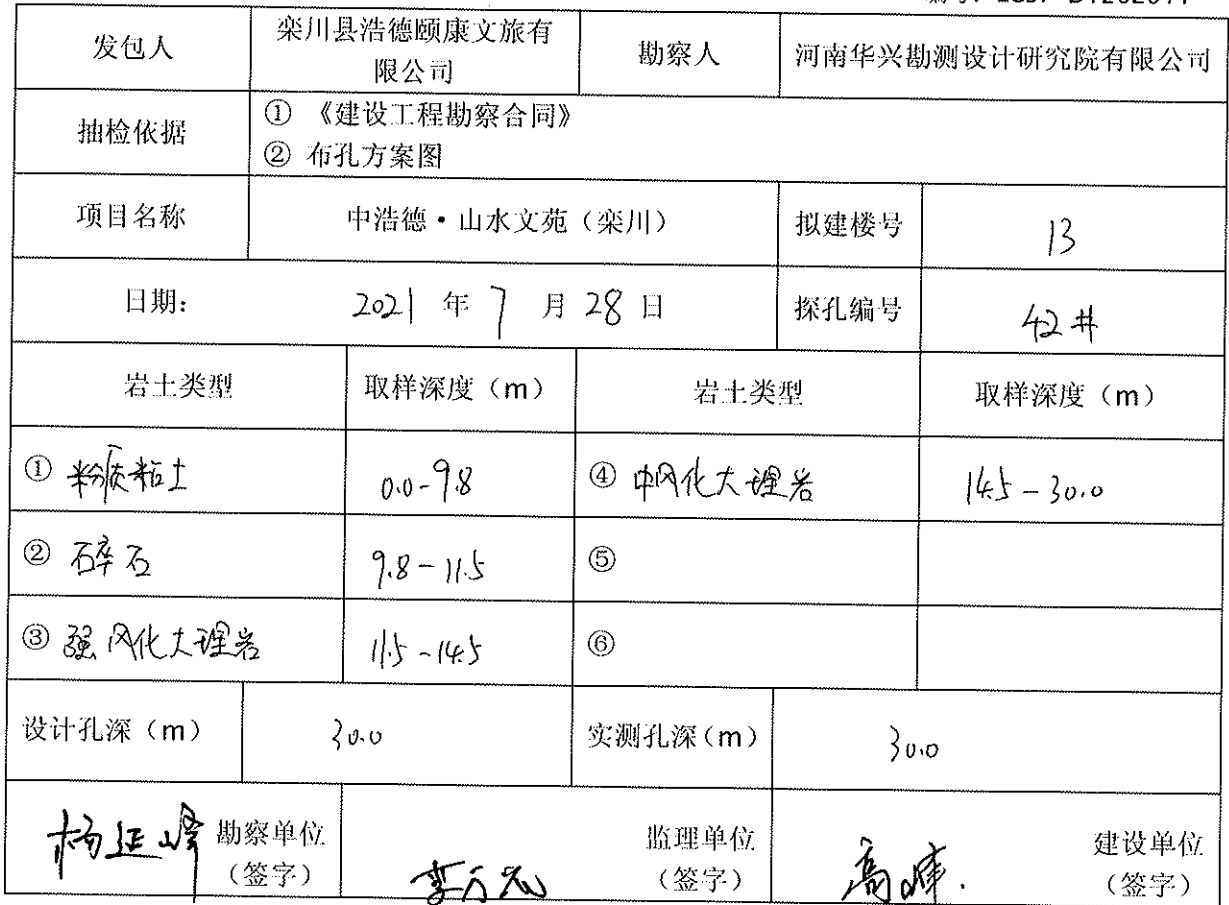 发包人
栾川县浩德颐康文旅有
限公司
勘察人
河南华兴勘测设计研究院有限公司
抽检依据
① 《建设工程勘察合同》
② 布孔方案图
项目名称
中浩德·山水文苑（栾川）
拟建楼号
13
日期： 2021 年 7 月 28 日
探孔编号
42#
岩土类型
取样深度（m）
岩土类型
取样深度（m）
① 粉质粘土
0.0-9.8
④ 中风化大理岩
14.5-30.0
② 碎石
9.8-11.5
⑤
③ 强风化大理岩
11.5-14.5
⑥
设计孔深（m）
30.0
实测孔深（m）
30.0
杨延峰 勘察单位
（签字）
监理单位
（签字）
高峰. 建设单位
（签字）